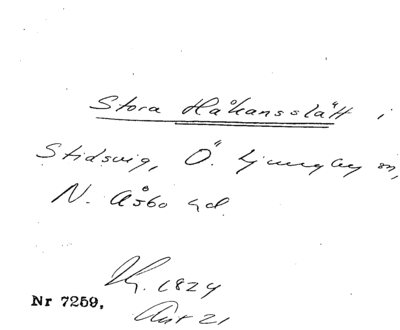 Stora Håkansslätt i
Stidsvig, Ö. Ljungby sn,
N. Åsbo hd.
1824
Nr 7259.
21